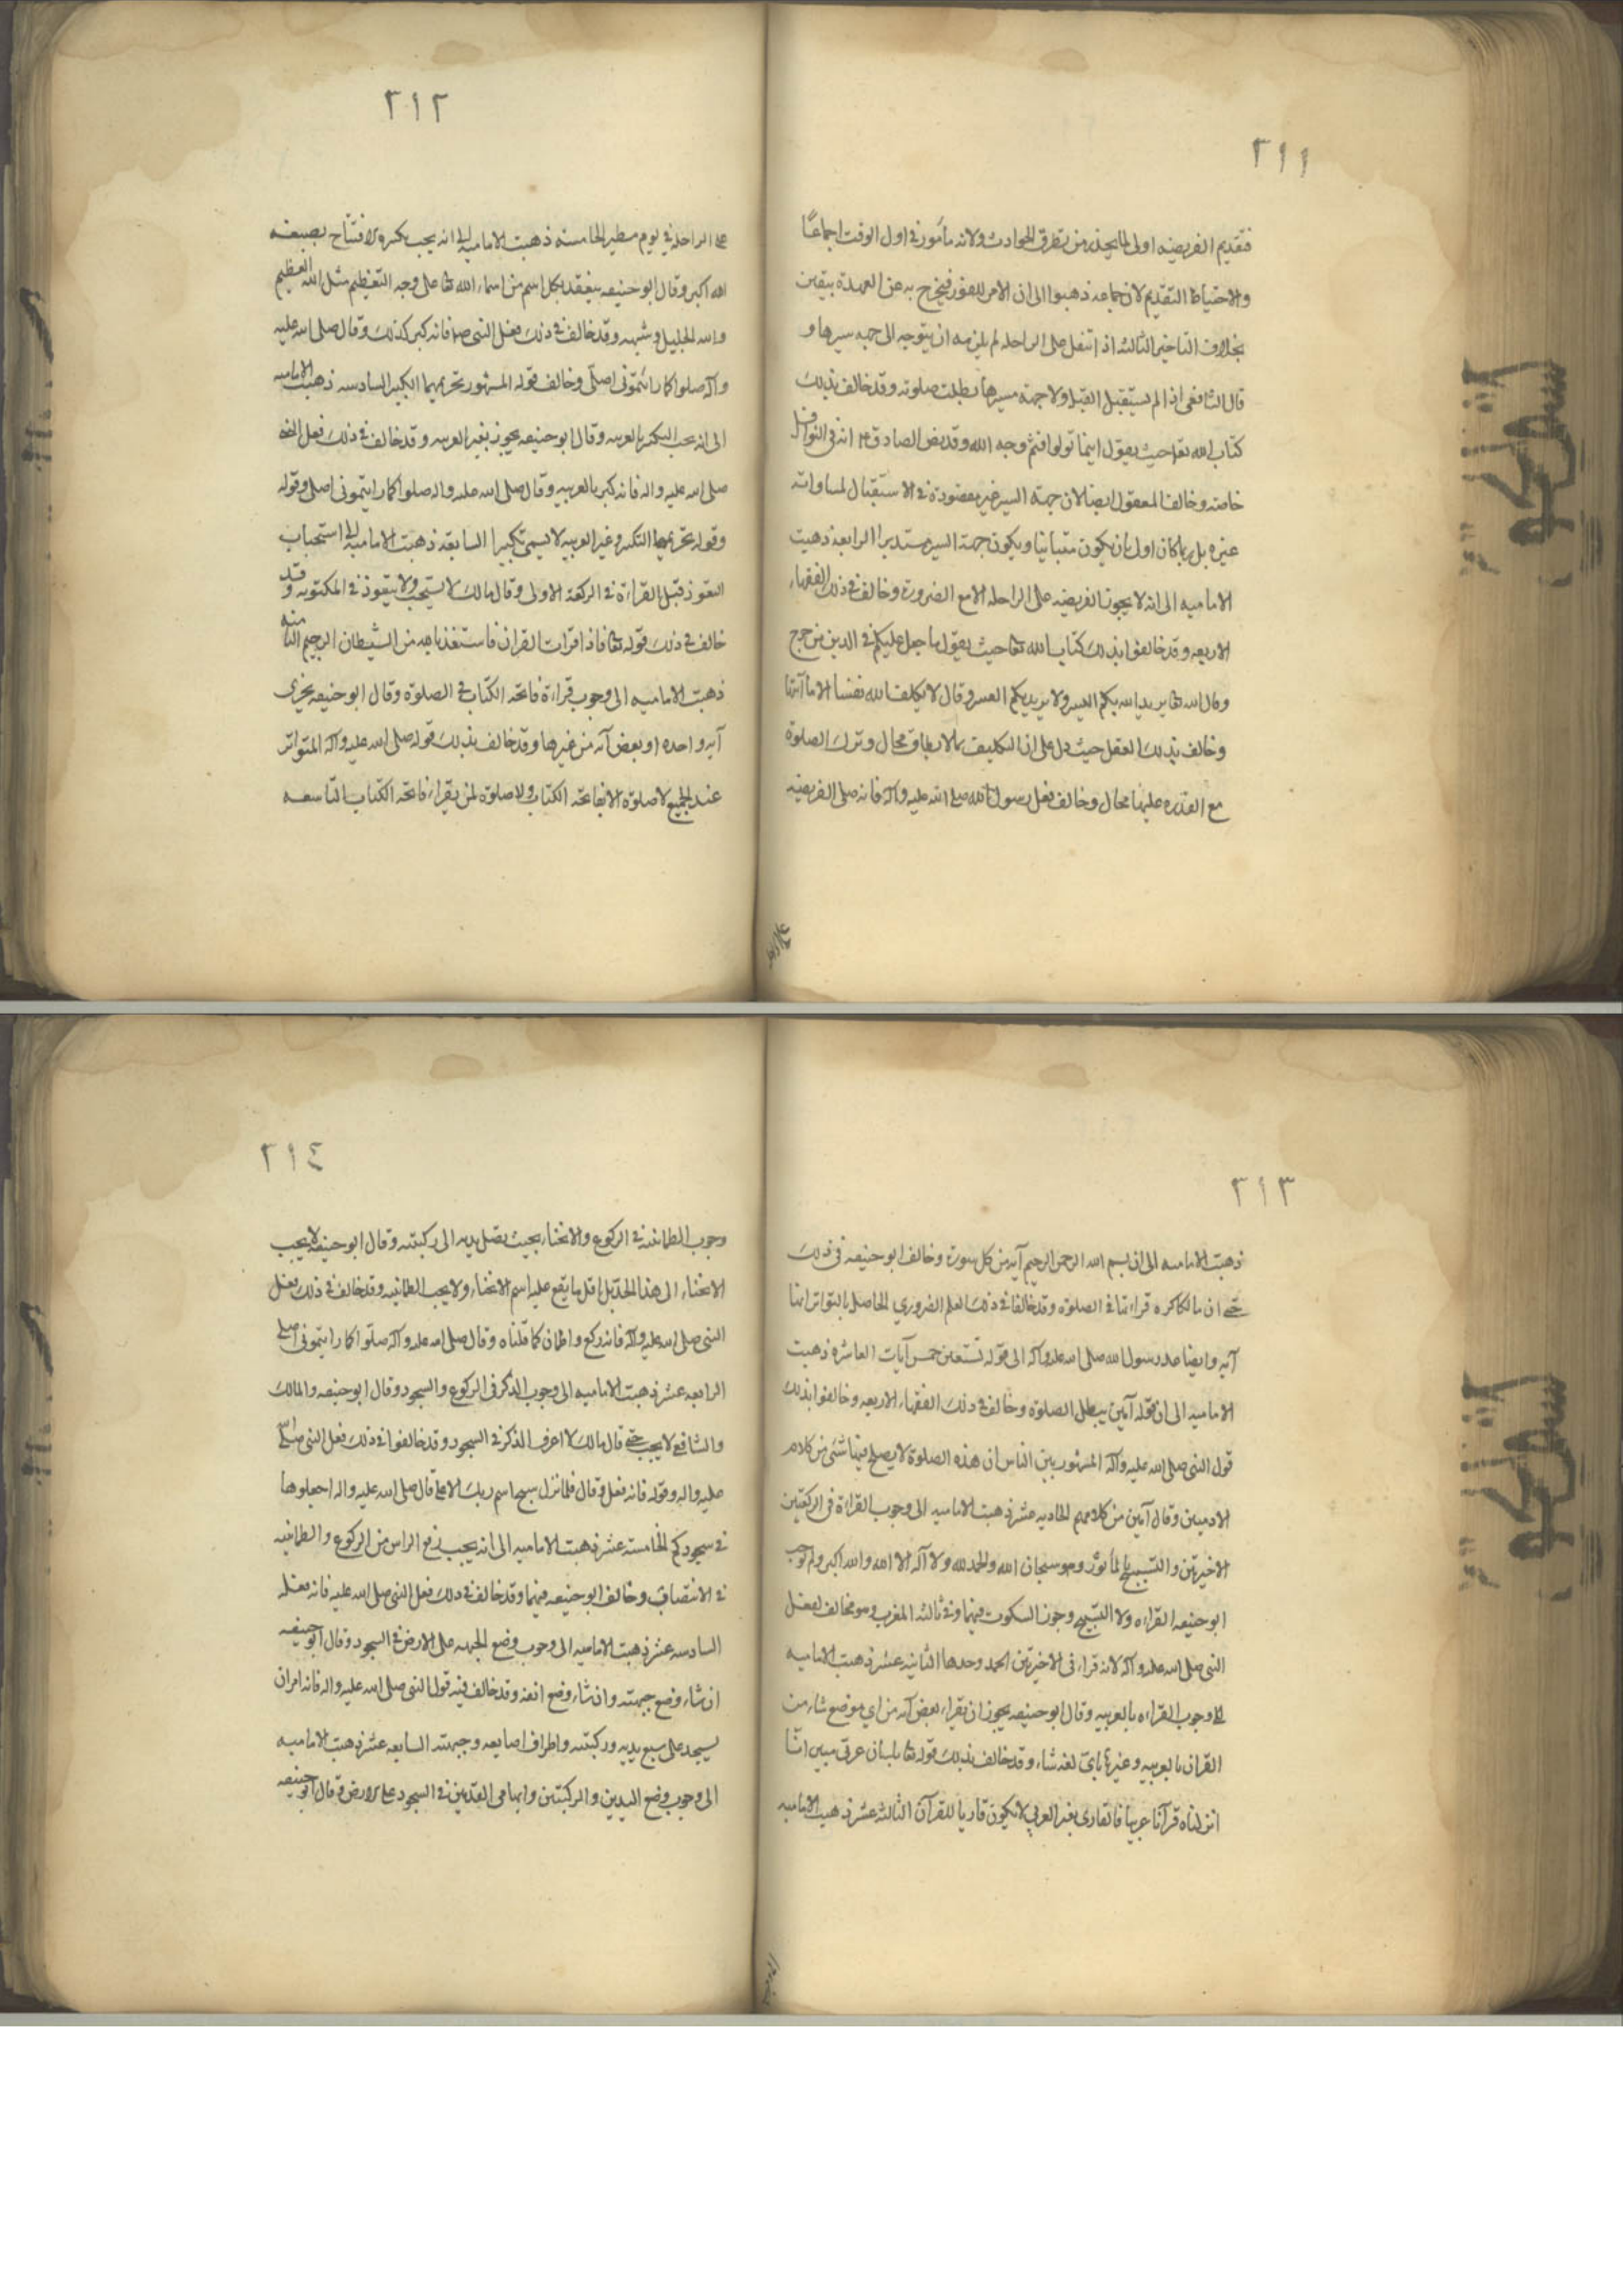 ٢١١
فتقديم الفريضه اولى لما يحذر من تطرق الحوادث ولانه مأمور في اول الوقت اجماعًا
والاحتياط التقديم لان جماعه ذهبوا الى ان الامر للفور فيخرج به عن العهدة بيقين
بخلاف التاخير الثالثه اذا تنفل على الراحله لم يلزمه ان يتوجه الى جهه سيرها و
قال الشافعي اذا لم يستقبل القبله ولا جهة مسيرها بطلت صلوته وقد خالف بذلك
كتاب الله تعا حيث يقول اينما تولوا فثم وجه الله وقد نص الصادق ع انه في النوافل
خاصه وخالف المعقول ايضا لان جهة السير غير مقصودة في الاستقبال لمساواته
غيره بل ربما كان اولى بان يكون متيانيا ويكون جهة السير مستدبرا الرابعه ذهبت
الاماميه الى انه لا يجوز الفريضه على الراحله الا مع الضرورة وخالف في ذلك الفقهاء
الاربعه وقد خالفوا بذلك كتاب الله تعا حيث يقول ما جعل عليكم في الدين من حرج
وقال الله تعا يريد الله بكم اليسر ولا يريد بكم العسر وقال لا يكلف الله نفسا الا ما آتها
وخالف بذلك العقل حيث دل على ان التكليف بما لا يطاق محال وترك الصلوة
مع القدره عليها محال وخالف فعل رسول الله صلى الله عليه وآله فانه صلى الفريضه
على الراحله
٢١٢
على الراحله في يوم مطير الخامسه ذهبت الاماميه الى انه يجب تكبيرة الافتتاح بصيغه
الله اكبر وقال ابو حنيفه ينعقد بكل اسم من اسماء الله تعا على وجه التعظيم مثل الله العظيم
والله الجليل وشبهه وقد خالف في ذلك فعل النبي ص فانه كبر كذلك وقال صلى الله عليه
وآله صلوا كما رأيتموني اصلي وخالف قوله المشهور تحريمها التكبير السادسه ذهبت الاماميه
الى انه يجب التكبير بالعربيه وقال ابو حنيفه يجوز بغير العربيه وقد خالف في ذلك فعل النبي
صلى الله عليه واله فانه كبر بالعربيه وقال صلى الله عليه واله صلوا كما رايتموني اصلي وقوله
وقوله تحريمها التكبير وغير العربيه لا يسمى تكبيرا السابعه ذهبت الاماميه الى استحباب
التعوذ قبل القراءة في الركعة الاولى وقال مالك لا يستحب ولا يتعوذ في المكتوبه وقد
خالف في ذلك قوله تعا فاذا قرات القران فاستعذ بالله من الشيطان الرجيم الثامنه
ذهبت الاماميه الى وجوب قراءة فاتحه الكتاب في الصلوة وقال ابو حنيفه يجزى
آيه واحده او بعض آيه من غيرها وقد خالف بذلك قوله صلى الله عليه وآله المتواتر
عند الجميع لا صلوة الا بفاتحه الكتاب ولا صلوة لمن يقراء فاتحه الكتاب التاسعه
٢١٣
ذهبت الاماميه الى ان بسم الله الرحمن الرحيم آيه من كل سورة وخالف ابو حنيفه في ذلك
حتى ان مالكا كره قراءتها في الصلوة وقد خالفا في ذلك العلم الضروري الحاصل بالتواتر انها
آيه وايضا عد رسول الله صلى الله عليه وآله الى قوله نستعين خمس آيات العاشره ذهبت
الاماميه الى ان قوله آمين يبطل الصلوة وخالف في ذلك الفقهاء الاربعه وخالفوا بذلك
قول النبي صلى الله عليه وآله المشهور بين الناس ان هذه الصلوة لا يصلح فيها شئ من كلام
الادميين وقال آمين من كلامهم الحاديه عشر ذهبت الاماميه الى وجوب القراءة في الركعتين
الاخيرتين والتسبيح بالمأثور وهو سبحان الله والحمد لله ولا آله الا الله والله اكبر ولم يوجب
ابو حنيفه القراءه ولا التسبيح وجوز السكوت فيهما وفي ثالثه المغرب وهو مخالف لفعل
النبي صلى الله عليه وآله لانه قراء في الاخيرتين الحمد وحدها الثانيه عشر ذهبت الاماميه
الى وجوب القراءه بالعربيه وقال ابو حنيفه يجوز ان يقراء بعض آيه من اي موضع شاء من
القران بالعربيه وغيرها باي لغه شاء وقد خالف بذلك قوله تعا بلسان عربي مبين انّا
انزلناه قرآنا عربيا فالقارى بغير العربي لا يكون قاريا للقرآن الثالثه عشر ذهبت الاماميه
٢١٤
وجوب الطمانينه في الركوع والانحناء بحيث يصل يديه الى ركبتيه وقال ابو حنيفه لا يجب
الانحناء الى هذا الحد بل اقل ما يقع عليه اسم الانحناء ولا يجب الطمانينه وقد خالف في ذلك فعل
النبي صلى الله عليه وآله فانه ركع واطمان كما قلناه وقال صلى الله عليه وآله صلّوا كما رايتموني اصلي
الرابعه عشر ذهبت الاماميه الى وجوب الذكر في الركوع والسجود وقال ابو حنيفه والمالك
والشافعي لا يجب حتى قال مالك لا اعرف الذكر في السجود وقد خالفوا في ذلك فعل النبي صلى الله
عليه واله وقوله فانه فعل وقال فلما نزل سبح اسم ربك الاعلى قال صلى الله عليه واله اجعلوها
في سجودكم الخامسه عشر ذهبت الاماميه الى انه يجب رفع الراس من الركوع والطمانينه
في الانتصاب وخالف ابو حنيفه فيهما وقد خالف في ذلك فعل النبي صلى الله عليه فانه فعله
السادسه عشر ذهبت الاماميه الى وجوب وضع الجبهه على الارض في السجود وقال ابو حنيفه
ان شاء وضع جبهته وان شاء وضع انفه وقد خالف فيه قول النبي صلى الله عليه واله فانه امر ان
يسجد على سبع يديه وركبتيه واطراف اصابعه وجبهته السابعه عشر ذهبت الاماميه
الى وجوب وضع اليدين والركبتين وابهامي القدمين في السجود على الارض وقال ابو حنيفه